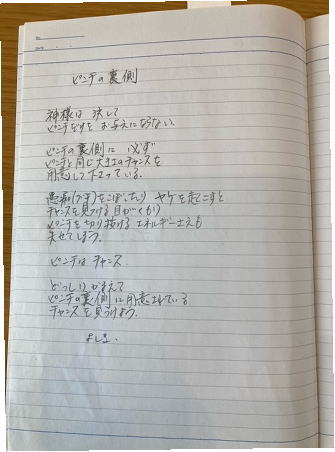 ピンチの裏側
神様は決して
ピンチだけをお与えにならない
ピンチの裏側に必ず
ピンチと同じ大きさのチャンスを
用意して下さっている。
愚痴(グチ)をこぼしたり ヤケを起こすと
チャンスを見つける目がくもり
ピンチを切り抜ける エネルギーさえも
失せてしまう。
ピンチは チャンス
どっしりかまえて
ピンチの裏側に用意されている
チャンスを見つけよう。